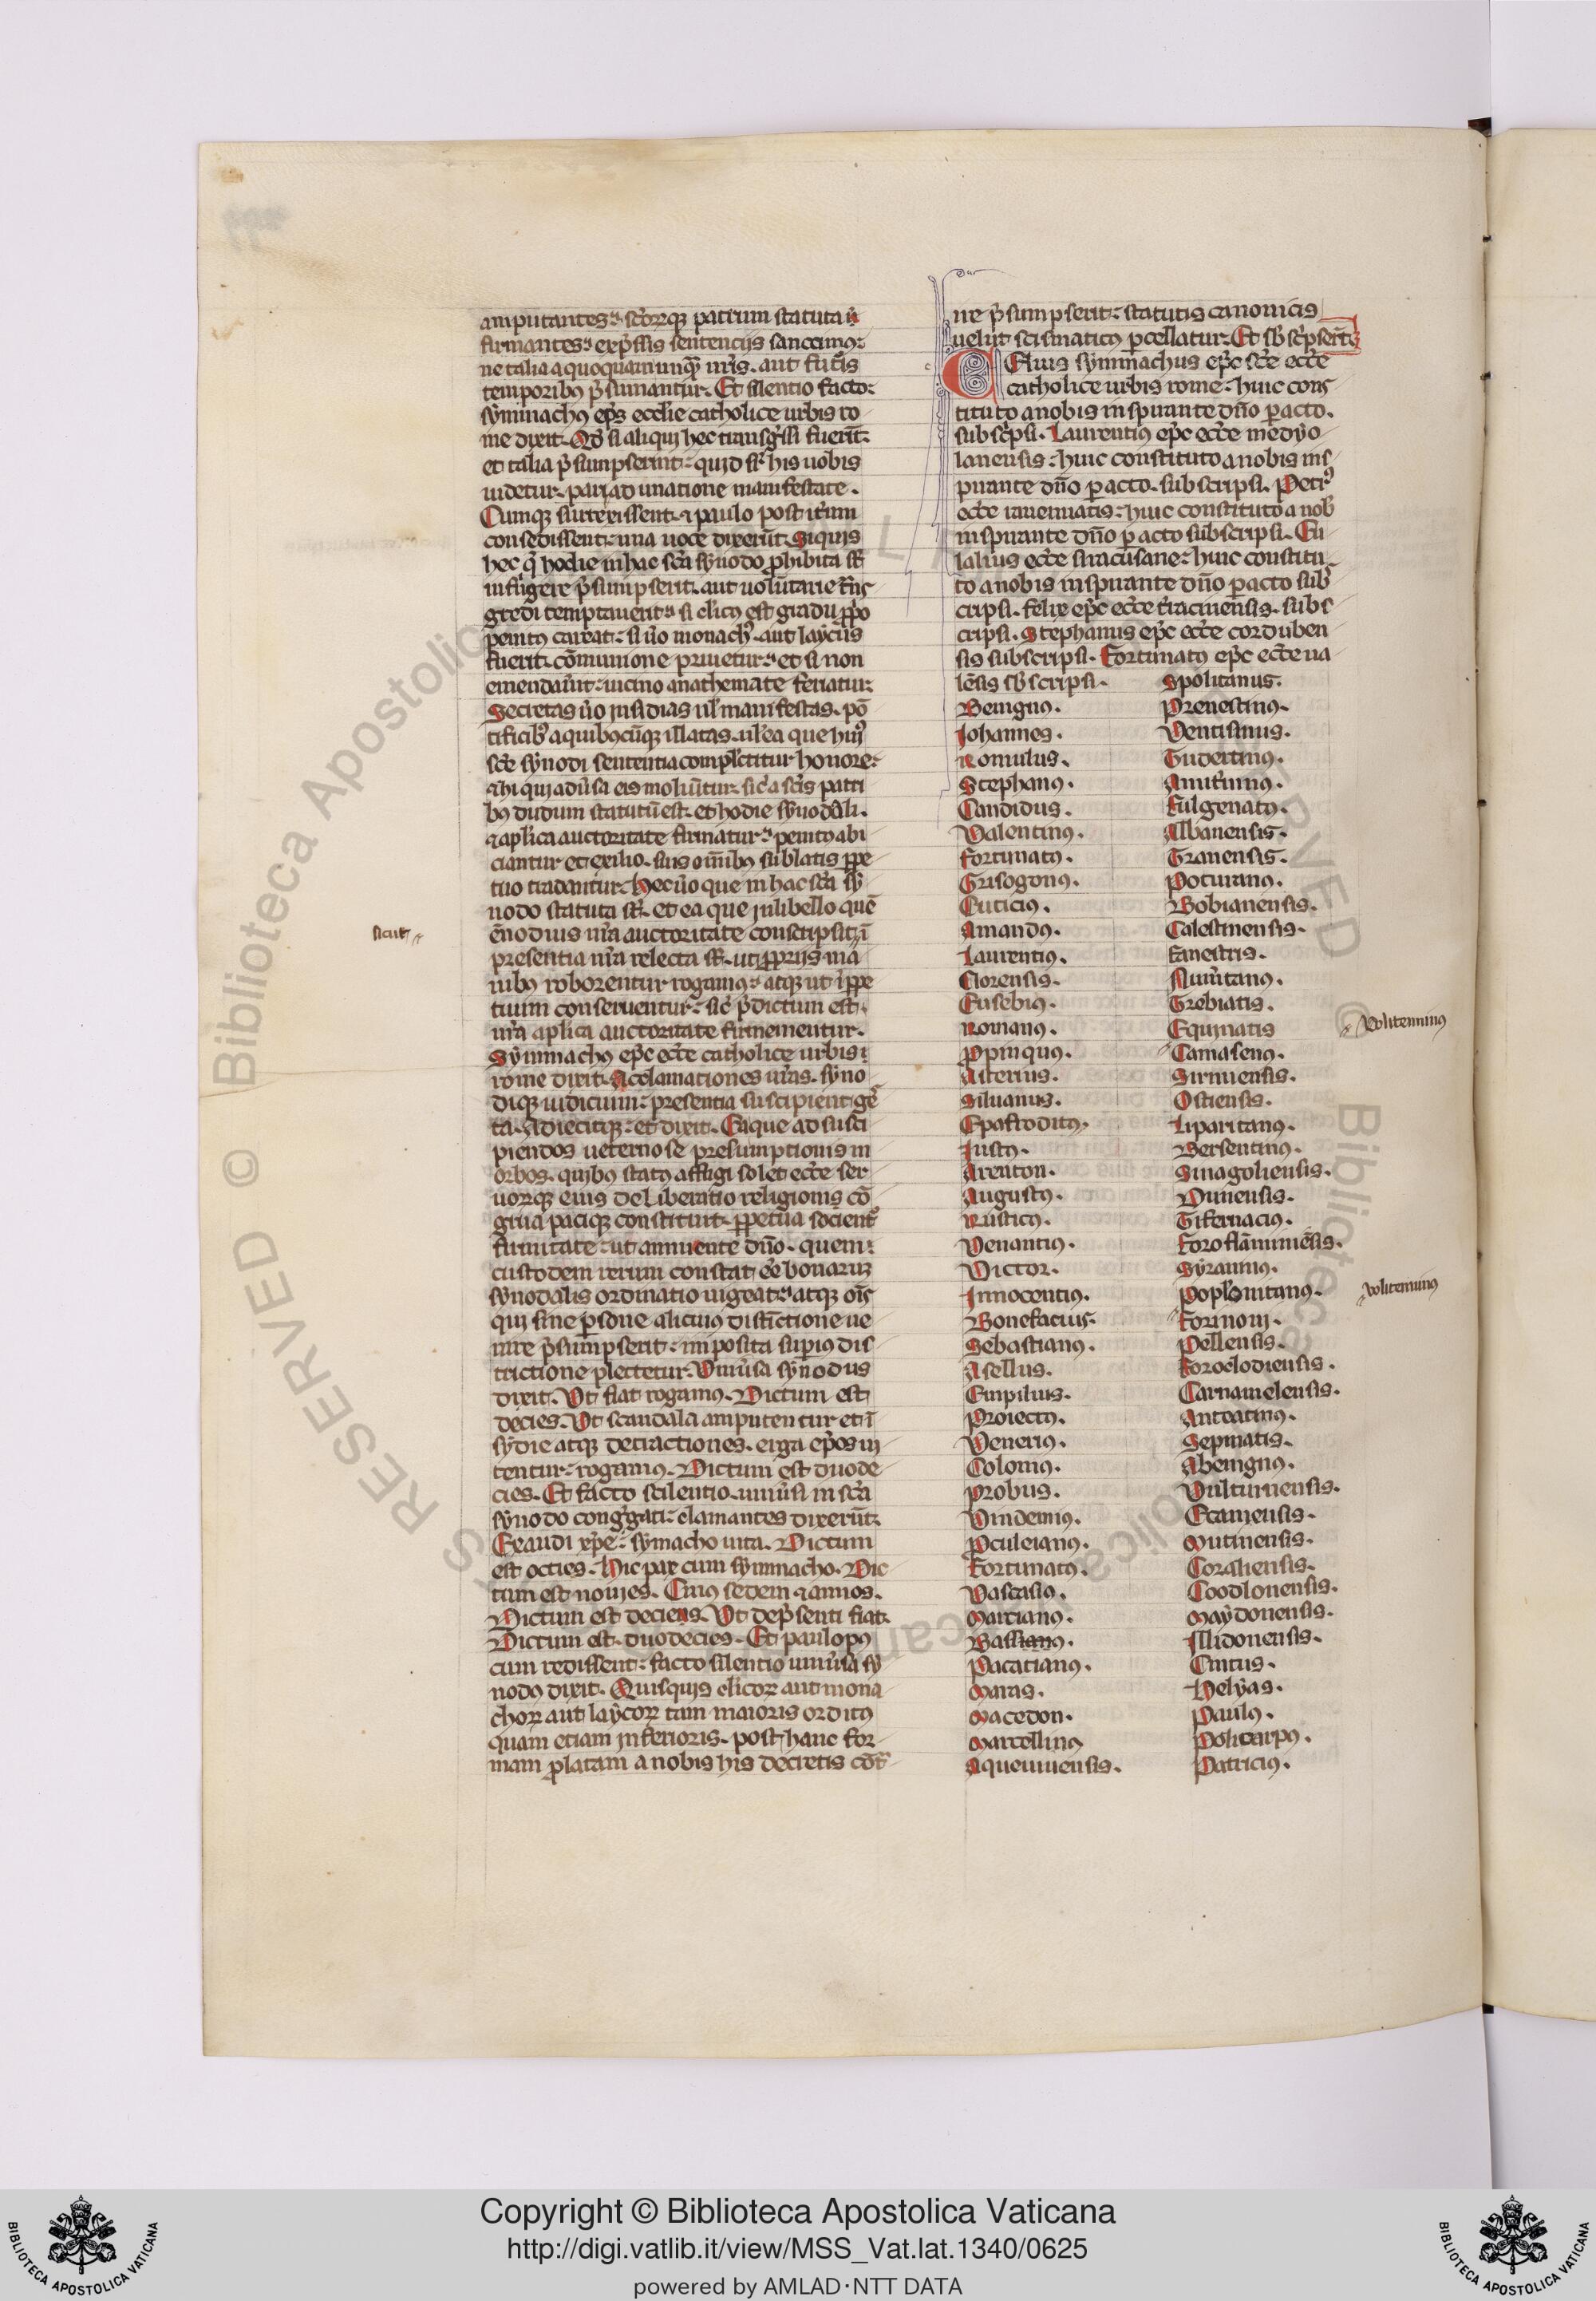 amputantes. sc̄orꝝq; patrum statuta ꝯ
firmantes. exp̄ssis sentencijs sanccimꝰ:
ne talia a quoquam unqͣ nr̄is. aut futͥs
temporibꝰ p̄sumantur. Et silentio facto:
symmachꝰ ep̄s ecclie catholice urbis ro
me dixit. Qd̓ si aliqui hec transgͥssi fuerit.
et talia p̄sumpserint: quid sr̄ his uobis
uidetur. pari ad unatione manifestate.
Cumq; surrexissent. ⁊ paulo post itͥum
consedissent: una uoce dixerūt. Siquis
hec q̄ hodie in hac sc̄a synodo ꝓhibita st̄
infͥgere p̄sumpserit. aut uolūtarie tͣns
gredi temptauerit. si cl̓icꝰ est gradu ꝓpͥo
penitꝰ careat: si ūo monachꝰ. aut laycus
fuerit. cōmunione priuetur. et si non
emendau̓it: uicino anathemate feriatur.
Secretas ūo insidias ul̓ manifestas. pō
tificibꝰ a quibꝰcūq; illatas. ul̓ ea que huiꝰ
sc̄e synodi sententia complectitur honore:
⁊ hi qui adūsa eis moliūtur. sic̄ a sc̄is patri
bꝰ dudum statutū est. et hodie synodali.
⁊ aplica auctoritate firmatur. penitꝰ abi
ciantur et exilio. suis omībꝰ sublatis ꝑpe
tuo tradantur. Hec ūo que in hac sc̄a sy
nodo statuta st̄. et ea que in libello quē
ēnodius nr̄a auctoritate conscripsit. ī
presentia nr̄a relecta st̄. ut ꝓprijs ma
nibꝰ roborentur rogamꝰ. atq; ut ī ꝑpe
tuum conseruentur: sic̄ p̄dictum est.
nr̄a aplica auctoritate firmementur.
Symmachꝰ ep̄c ecc̄e catholice urbis
rome dixit. Acclamationes ur̄as. syno
diq; iudicium: presentia suscipient ges
ta. Adiecitq; et dixit. Eaque ad susci
piendos ueternose presumptionis m
orbos. quibꝰ statꝰ affligi solet ecc̄e ser
uorꝝq; eius deliberatio religionis cō
grua paciq; constituit. ꝑpetua socientͬ
firmitate: ut annuente dn̄o. quem:
custodem rerum constat ēe bonaruꝫ
synodalis ordinatio uigeat. atq; oīs
qui sine p̄sone alicuius distīctione ue
nire p̄sumpserit: imposita supiꝰ dis
trictione plectetur. Uniūsa synodus
dixit. Ut fiat rogamꝰ. Dictum est
decies. Ut scandala amputentur et ī
sydie atq; detractiones. erga ep̄os in
tentur: rogamꝰ. Dictum est duode
cies. Et facto scilentio. uniūsi in sc̄a
synodo congͥgati: clamantes dixerūt.
Exaudi xp̄e: symacho uita. Dictum
est octies. Hic pax cum symmacho. Dic
tum est nouies. Cuius sedem ⁊ annos.
Dictum est deciens. Ut de p̄senti fiat.
Dictum est. duodecies. Et paulopꝰ
cum redissent: facto silentio uniūsa sy
nodꝰ dixit. Quisquis cl̓icoꝝ aut mona
choꝝ aut laycoꝝ tam maioris orditꝰ
quam etiam inferioris. post hanc for
mam ꝓlatam a nobis his decretis cōtͣ
sicut
ne p̄sumpserit: statutis canonicis
uelut scismaticꝰ ꝑcellatur. Et sb̓ sc̄pserūt.
Celius symmachus ep̄c sc̄e ecc̄e
catholice urbis rome: huic cons
tituto a nobis inspirante dn̄o ꝑacto.
subsc̄psi. Laurentiꝰ ep̄c ecc̄e medyo
lanensis: huic constituto a nobis ins
pirante dn̄o ꝑacto. subscripsi. Petrꝰ
ecc̄e rauennatis: huic constituto a nob̓
inspirante dn̄o ꝑacto subscripsi. Eu
lalius ecc̄e siracusane: huic constitu
to a nobis inspirante dn̄o ꝑacto subs̓
cripsi. Felix ep̄c ecc̄e tͥracinensis. subs
cripsi. Stephanus ep̄c ecc̄e corduben
sis subscripsi. Fortunatꝰ ep̄c ecc̄e ua
lēsis sb̓scripsi. Spolitanus.
Benignꝰ. Prenestinꝰ.
Johannes. Uentisinus.
Romulus. Tudertinꝰ.
Stephanꝰ. Amit̓inus.
Candidus. Fulgenatꝰ.
Ualentinꝰ. Albanensis.
Fortunatꝰ. Tranensis.
Grisogonꝰ. Potuianꝰ.
Euticiꝰ. Bobianensis.
Amandꝰ. Calestinensis.
Laurentiꝰ. Fanestris.
Clorensis. Num̓tanꝰ.
Eusebiꝰ. Trebiatis.
Romanꝰ. Equinatis
Ꝓpinquꝰ. Camasenꝰ.
Asterius. Sirmiensis.
Siluanus. Ostiensis.
Epafroditꝰ. Liparitanꝰ.
Justꝰ. Bersentinꝰ.
Arenton. Sinagoliensis.
Augustꝰ. Dunensis.
Rusticꝰ. Tifernaciꝰ.
Uenantiꝰ. Foro flāminiēsis.
Uictor. Syrannꝰ.
Innocentiꝰ. Poplonitanꝰ.
Bonefacius. Forinoni.
Sebastianꝰ. Pellensis.
Asellus. Foroclodiensis.
Empilius. Carnamelensis.
Proiectꝰ. Anteatinꝰ.
Ueneriꝰ. Sepinatis.
Coloniꝰ. Abenignꝰ.
Probus. Uulturnensis.
Uindemiꝰ. Ecanensis.
Ꝓculeianꝰ. Mutinensis.
Fortunatꝰ. Corsliensis.
Vascasiꝰ. Coodlonensis.
Marcianꝰ. Maydonensis.
Bassianꝰ. Illidonensis.
Pacatianꝰ. Cintus.
Maras. Helyas.
Macedon. Paulꝰ.
Marcellinꝰ Policarpꝰ.
Aquennensis. Patriciꝰ.
Volitenninꝰ
volitenninꝰ
Copyright © Biblioteca Apostolica Vaticana
http://digi.vatlib.it/view/MSS_Vat.lat.1340/0625
powered by AMLAD·NTT DATA
BIBLIOTECA APOSTOLICA VATICANA
BIBLIOTECA APOSTOLICA VATICANA